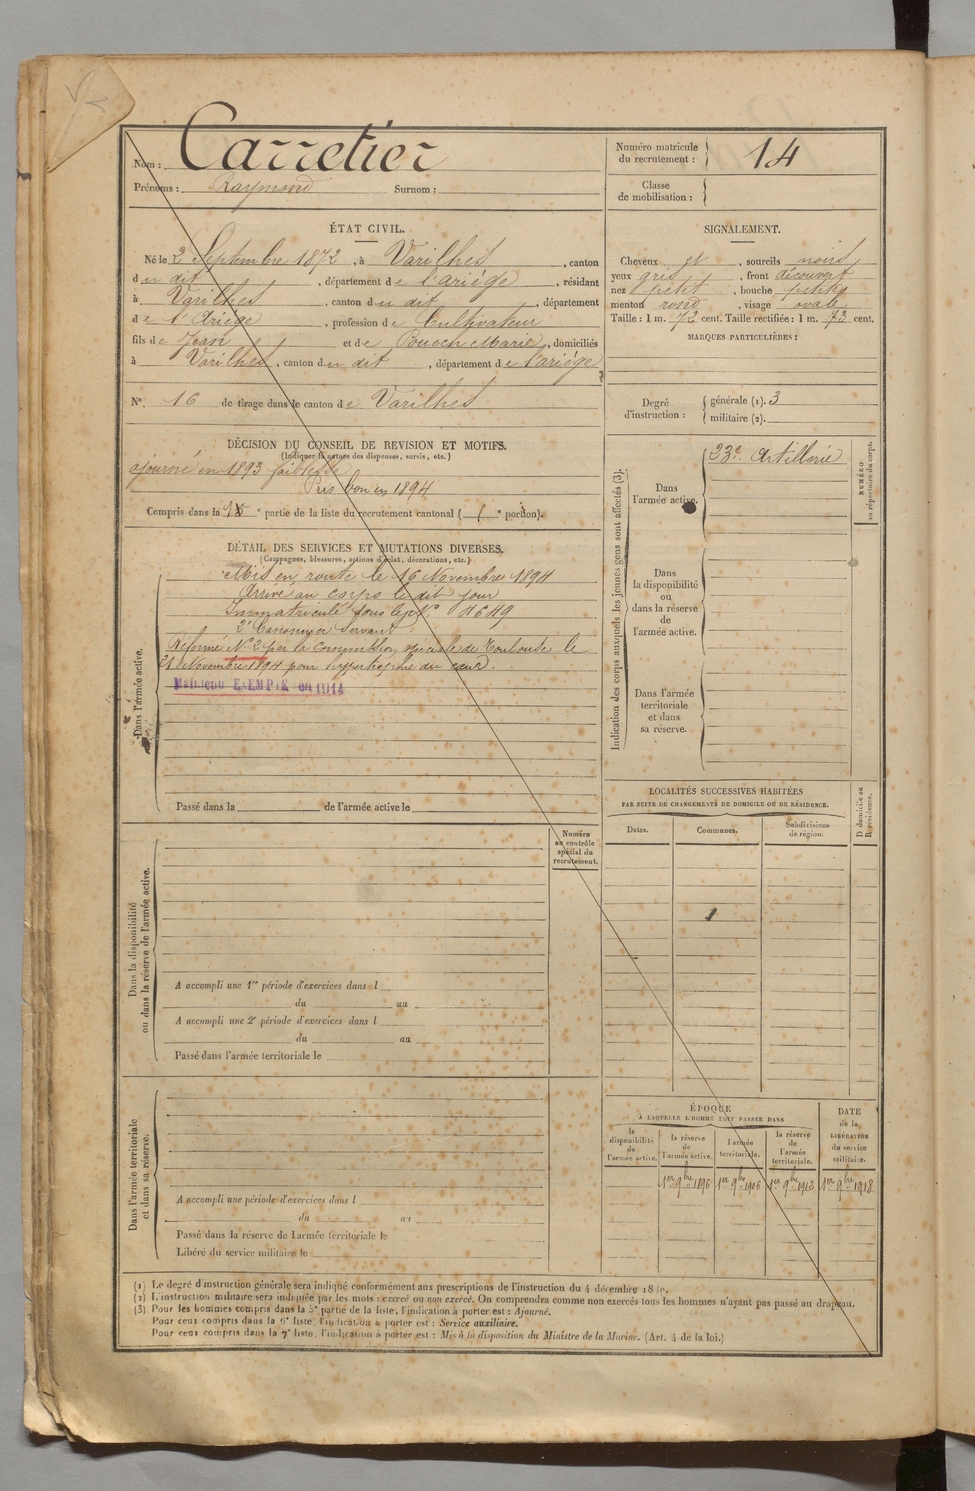 Nom : Carretier
Prénoms : Raymond Surnom :
Numéro matricule
du recrutement : 14
Classe
de mobilisation :
ÉTAT CIVIL.
Né le 2 Septembre 1872, à Varilhes, canton
du dit, département de l'ariége, résidant
à Varilhes, canton du dit, département
de l'Ariége, profession de Cultivateur
fils de Jean et de Pouech Marie, domiciliés
à Varilhes, canton du dit, département de l'ariége
N° 16 de tirage dans le canton de Varilhes
SIGNALEMENT.
Cheveux et, sourcils noirs
yeux gris, front découvert
nez petit, bouche petite
menton rond, visage ovale
Taille : 1 m. 72 cent. Taille rectifiée : 1 m. 73 cent.
MARQUES PARTICULIÈRES :
Degré
d'instruction :
générale (1). 3
militaire (2).
DÉCISION DU CONSEIL DE REVISION ET MOTIFS.
(Indiquer la nature des dispenses, sursis, etc.)
ajourné en 1893 faiblesse
Pris bon en 1894
Compris dans la partie de la liste du recrutement cantonal ( 1 e portion).
DÉTAIL DES SERVICES ET MUTATIONS DIVERSES.
(Campagnes, blessures, actions d'éclat, décorations, etc.)
Dans l'armée active.
Mis en route le 16 Novembre 1894
Arrivé au corps le dit jour
Immatriculé sous le N°
2e Canonnier Servant
Réformé N° 2 par la commission spéciale de Toulouse le
21 Novembre 1894 pour hypertrophie du cœur.
Maintenu EXEMPTÉ en 1914
Passé dans la de l'armée active le
Indication des corps auxquels les jeunes gens sont affectés (3).
Dans
l'armée active.
23e Artillerie
NUMÉRO
au répertoire du corps.
Dans
la disponibilité
ou
dans la réserve
de
l'armée active.
Dans l'armée
territoriale
et dans
sa réserve.
LOCALITÉS SUCCESSIVES HABITÉES
PAR SUITE DE CHANGEMENTS DE DOMICILE OU DE RÉSIDENCE.
Dates.
Communes.
Subdivisions
de région.
D domicile ou
R résidence.
Dans la disponibilité
ou dans la réserve de l'armée active.
Numéro
au contrôle
spécial du
recrutement.
A accompli une 1re période d'exercices dans l
du au
A accompli une 2e période d'exercices dans l
du au
Passé dans l'armée territoriale le
Dans l'armée territoriale
et dans sa réserve.
A accompli une période d'exercices dans l
du au
Passé dans la réserve de l'armée territoriale le
Libéré du service militaire le
ÉPOQUE
A LAQUELLE L'HOMME DOIT PASSER DANS
la
disponibilité
de
l'armée active.
la réserve
de
l'armée active.
l'armée
territoriale.
la réserve
de
l'armée
territoriale.
DATE
de la
LIBÉRATION
du service
militaire.
1er 9bre 1896 1er 9bre 1906 1er 9bre 1912 1er 9bre 1918
(1) Le degré d'instruction générale sera indiqué conformément aux prescriptions de l'instruction du 4 décembre
(2) L'instruction militaire sera indiquée par les mots : exercé ou non exercé. On comprendra comme non exercés tous les hommes n'ayant pas passé au drapeau.
(3) Pour les hommes compris dans la 5e partie de la liste, l'indication à porter est : Ajourné.
Pour ceux compris dans la 6e liste, l'indication à porter est : Service auxiliaire.
Pour ceux compris dans la 7e liste, l'indication à porter est : Mis à la disposition du Ministre de la Marine. (Art. 4 de la loi.)